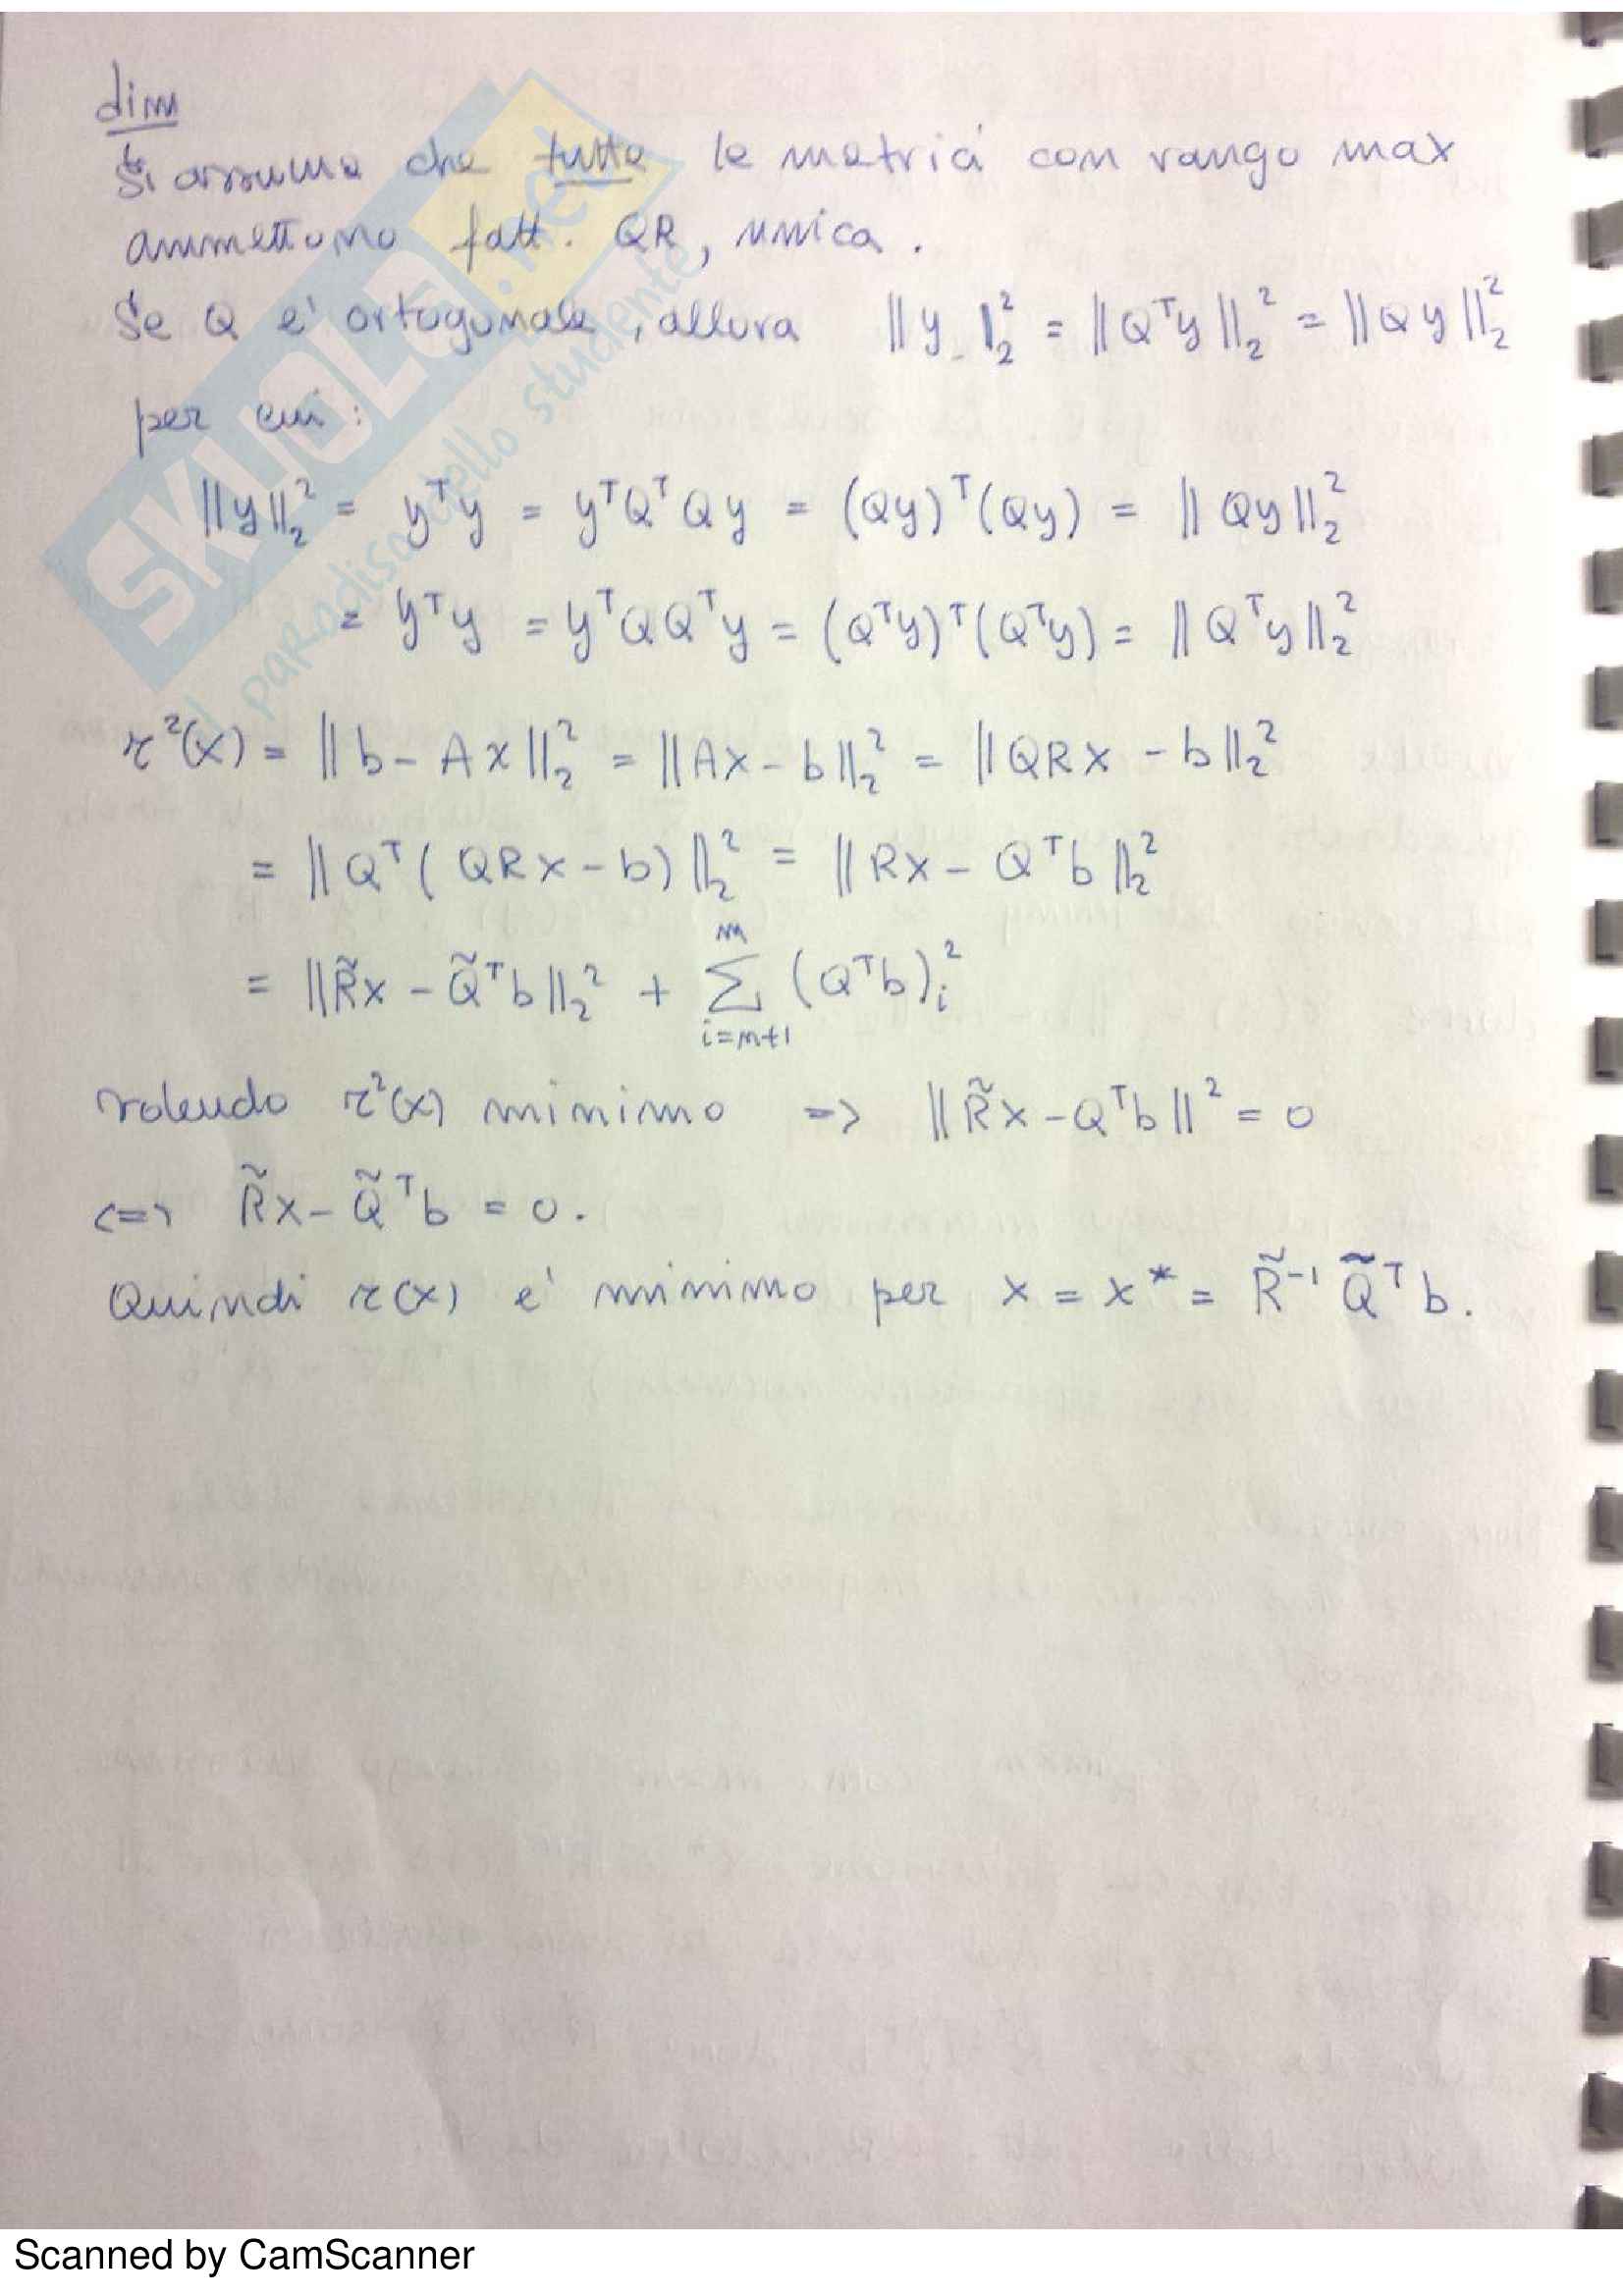 dim
Si assuma che tutte le matrici con rango max
ammettono fatt. QR, unica.
Se Q e' ortogonale, allora ‖y‖₂² = ‖Qᵀy‖₂² = ‖Qy‖₂²
per cui:
‖y‖₂² = yᵀy = yᵀQᵀQy = (Qy)ᵀ(Qy) = ‖Qy‖₂²
= yᵀy = yᵀQQᵀy = (Qᵀy)ᵀ(Qᵀy) = ‖Qᵀy‖₂²
r²(x) = ‖b - Ax‖₂² = ‖Ax - b‖₂² = ‖QRx - b‖₂²
= ‖Qᵀ(QRx - b)‖₂² = ‖Rx - Qᵀb‖₂²
= ‖R̃x - Q̃ᵀb‖₂² + ∑_{i=n+1}^{m} (Qᵀb)ᵢ²
volendo r²(x) minimo => ‖R̃x - Qᵀb‖² = 0
<=> R̃x - Q̃ᵀb = 0.
Quindi r(x) e' minimo per x = x* = R̃⁻¹Q̃ᵀb.
SKUOLA.net
il paradiso dello studente
Scanned by CamScanner